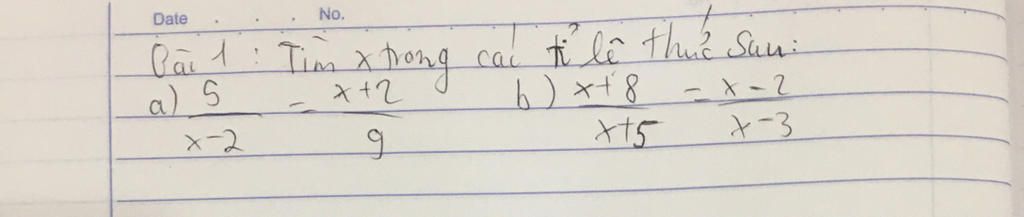 Date . . . No.
Bài 1 : Tìm x trong các tỉ lệ thức sau:
a) 5/(x-2) = (x+2)/9 b) (x+8)/(x+5) = (x-2)/(x-3)